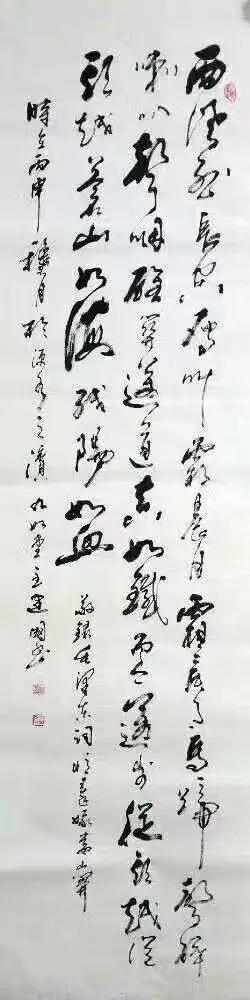 西風烈長空雁叫霜晨月霜晨月馬蹄聲碎
喇叭聲咽雄關漫道真如鐵而今邁步從頭越從
頭越蒼山如海殘陽如血 敬録毛澤東詞憶秦娥婁山關
時在丙申 月於 水之濱 如如堂主建國書